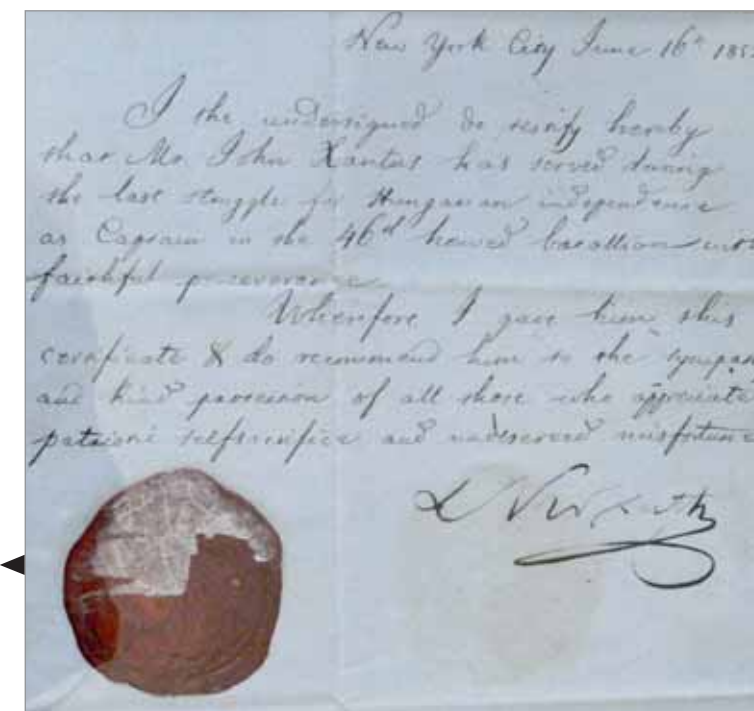 New York City June 16th 185
I the undersigned do testify hereby
that Mr. John Xantus has served during
the last struggle for Hungarian independence
as Captain in the 46d honved batallion with
faithful perseverance.
Wherefore I gave him this
certificate & do recommend him to the sympat
and kind protection of all those who appreciate
patriotic selfsacrifice and undeserved misfortune